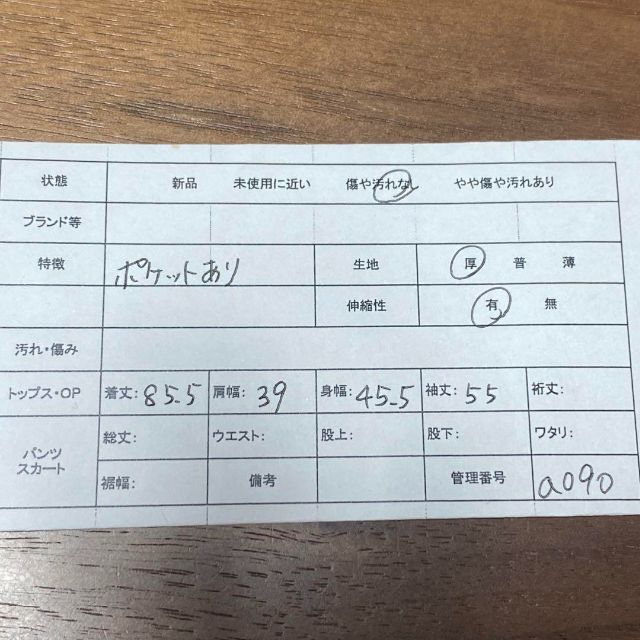 状態 新品 未使用に近い 傷や汚れなし やや傷や汚れあり
ブランド等
特徴 ポケットあり 生地 厚 普 薄
伸縮性 有 無
汚れ・傷み
トップス・OP 着丈: 85.5 肩幅: 39 身幅: 45.5 袖丈: 55 裄丈:
パンツ スカート 総丈: ウエスト: 股上: 股下: ワタリ:
裾幅: 備考 管理番号 a090